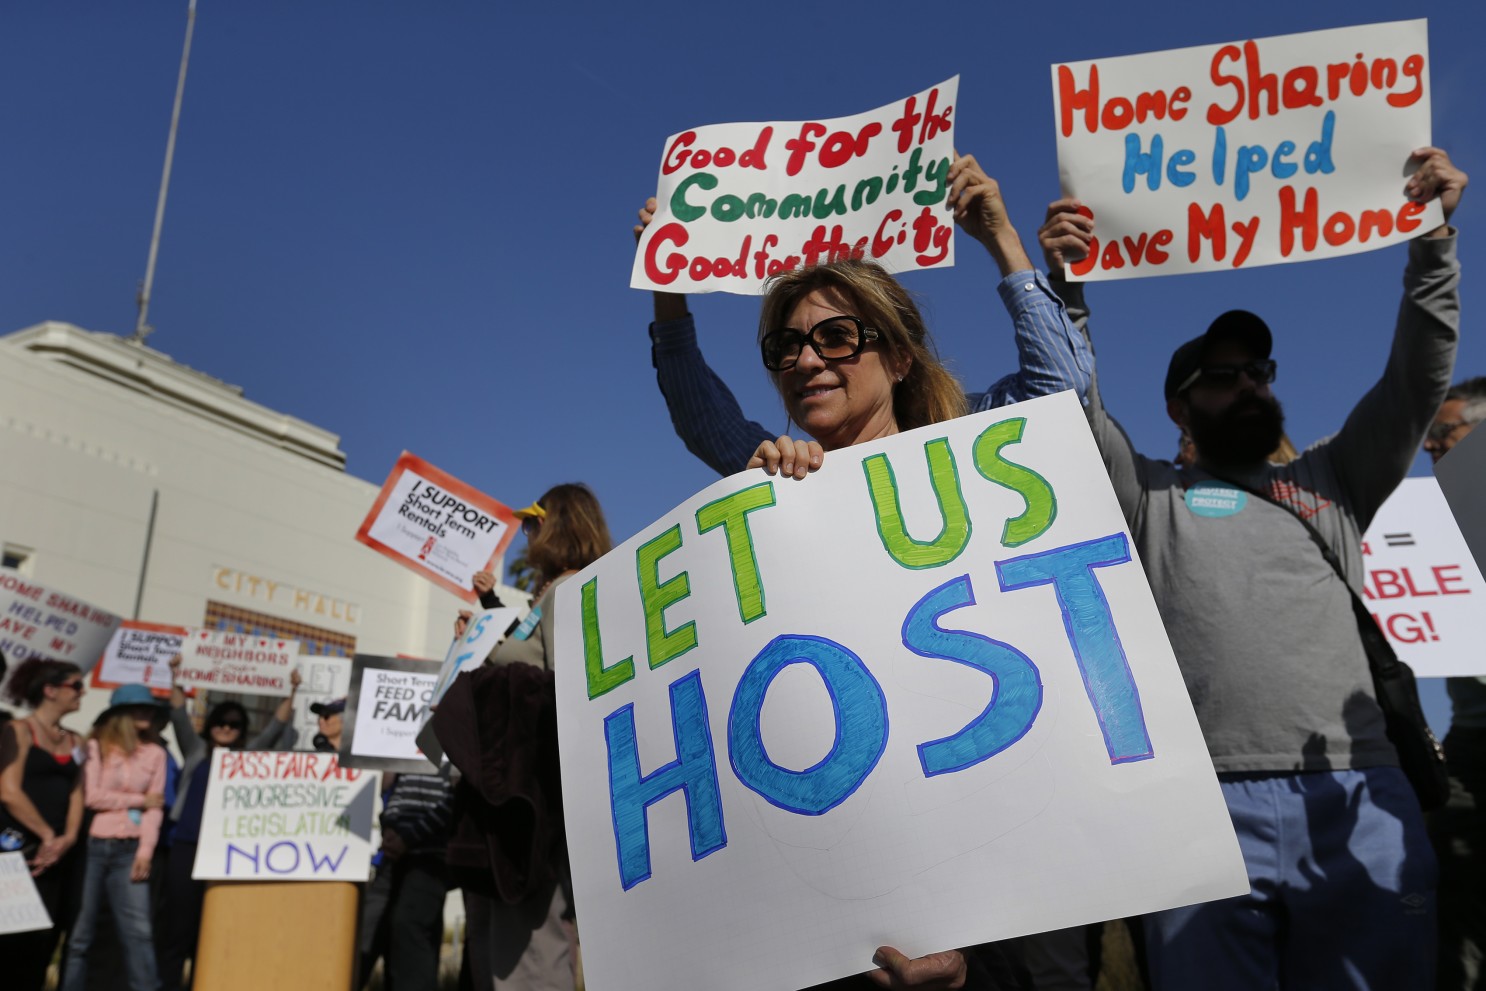 Good for the
Community
Good for the City
Home Sharing
Helped
Save My Home
LET US
HOST
I SUPPORT
Short Term
Rentals
I Support
CITY HALL
HOME SHARING
HELPED
SAVE MY
HOME
I SUPPORT
Short Term
Rentals
I MY
NEIGHBORS
HOME SHARING
LET
Short Term
FEED
FAM
I Support
PASS FAIR AND
PROGRESSIVE
LEGISLATION
NOW
PROTECT
=
ABLE
NG!